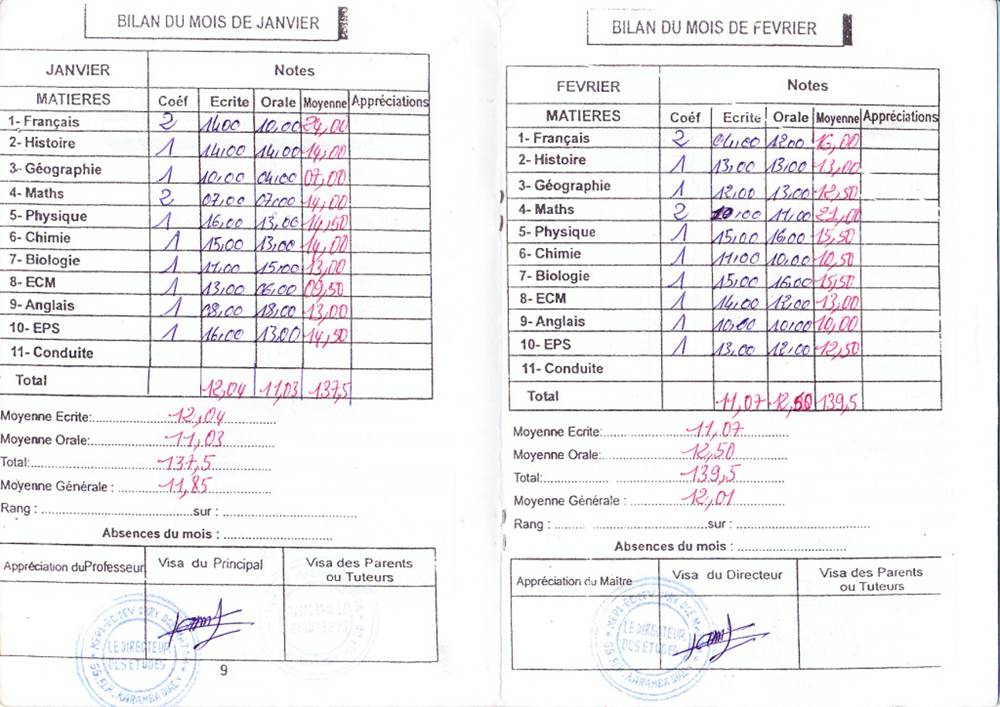 BILAN DU MOIS DE JANVIER
JANVIER Notes
MATIERES Coéf Ecrite Orale Moyenne Appréciations
1- Français 2 14,00 10,00 24,00
2- Histoire 1 14,00 14,00 14,00
3- Géographie 1 10,00 04,00 07,00
4- Maths 2 07,00 07,00 14,00
5- Physique 1 16,00 13,00 14,50
6- Chimie 1 15,00 13,00 14,00
7- Biologie 1 11,00 15,00 13,00
8- ECM 1 13,00 06,00 09,50
9- Anglais 1 08,00 18,00 13,00
10- EPS 1 16,00 13,00 14,50
11- Conduite
Total 12,04 11,03 137,5
Moyenne Ecrite: 12,04
Moyenne Orale: 11,03
Total: 137,5
Moyenne Générale : 11,85
Rang : sur :
Absences du mois :
Appréciation du Professeur Visa du Principal Visa des Parents ou Tuteurs
LE DIRECTEUR
DES ETUDES
9
BILAN DU MOIS DE FEVRIER
FEVRIER Notes
MATIERES Coéf Ecrite Orale Moyenne Appréciations
1- Français 2 04,00 12,00 16,00
2- Histoire 1 13,00 13,00 13,00
3- Géographie 1 12,00 13,00 12,50
4- Maths 2 10,00 11,00 21,00
5- Physique 1 15,00 16,00 15,50
6- Chimie 1 11,00 10,00 10,50
7- Biologie 1 15,00 16,00 15,50
8- ECM 1 14,00 12,00 13,00
9- Anglais 1 10,00 10,00 10,00
10- EPS 1 13,00 12,00 12,50
11- Conduite
Total 11,07 12,50 139,5
Moyenne Ecrite: 11,07
Moyenne Orale: 12,50
Total: 139,5
Moyenne Générale : 12,01
Rang : sur :
Absences du mois :
Appréciation du Maître Visa du Directeur Visa des Parents ou Tuteurs
LE DIRECTEUR
DES ETUDES